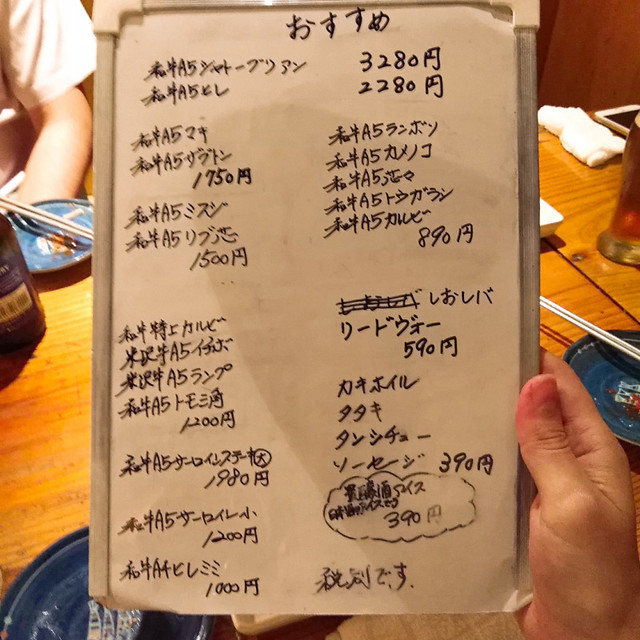 おすすめ
和牛A5シャトーブリアン 3280円
和牛A5ヒレ 2280円
和牛A5マキ
和牛A5ザブトン
1750円
和牛A5ミスジ
和牛A5リブ芯
1500円
和牛特上カルビ
米沢牛A5イチボ
米沢牛A5ランプ
和牛A5トモ三角
1200円
和牛A5サーロインステーキ大
1980円
和牛A5サーロイン小
1200円
和牛A4ヒレミミ
1000円
和牛A5ランボソ
和牛A5カメノコ
和牛A5芯々
和牛A5トウガラシ
和牛A5カルビ
890円
しおレバ
リードヴォー
590円
カキホイル
タタキ
タンシチュー
ソーセージ 390円
アイス
390円
税別です。